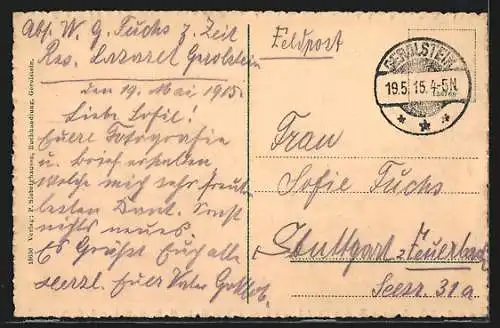 Abs. W. G. Fuchs z. Zeit
Res. Lazaret Gerolstein
den 19. Mai 1915.
Liebe Sofie!
Euere Fotografie
u. Brief erhalten
welche mich sehr freut
besten Dank. Sonst
nichts neues.
Es Grüßt Euch alle
herzl. Euer Vater Gottlob.
Feldpost
GEROLSTEIN
19.5.15.4-5N
Frau
Sofie Fuchs
Stuttgart-Feuerbach
Seestr. 31a
Verlag: P. Niebeckhausen, Buchhandlung, Gerolstein.